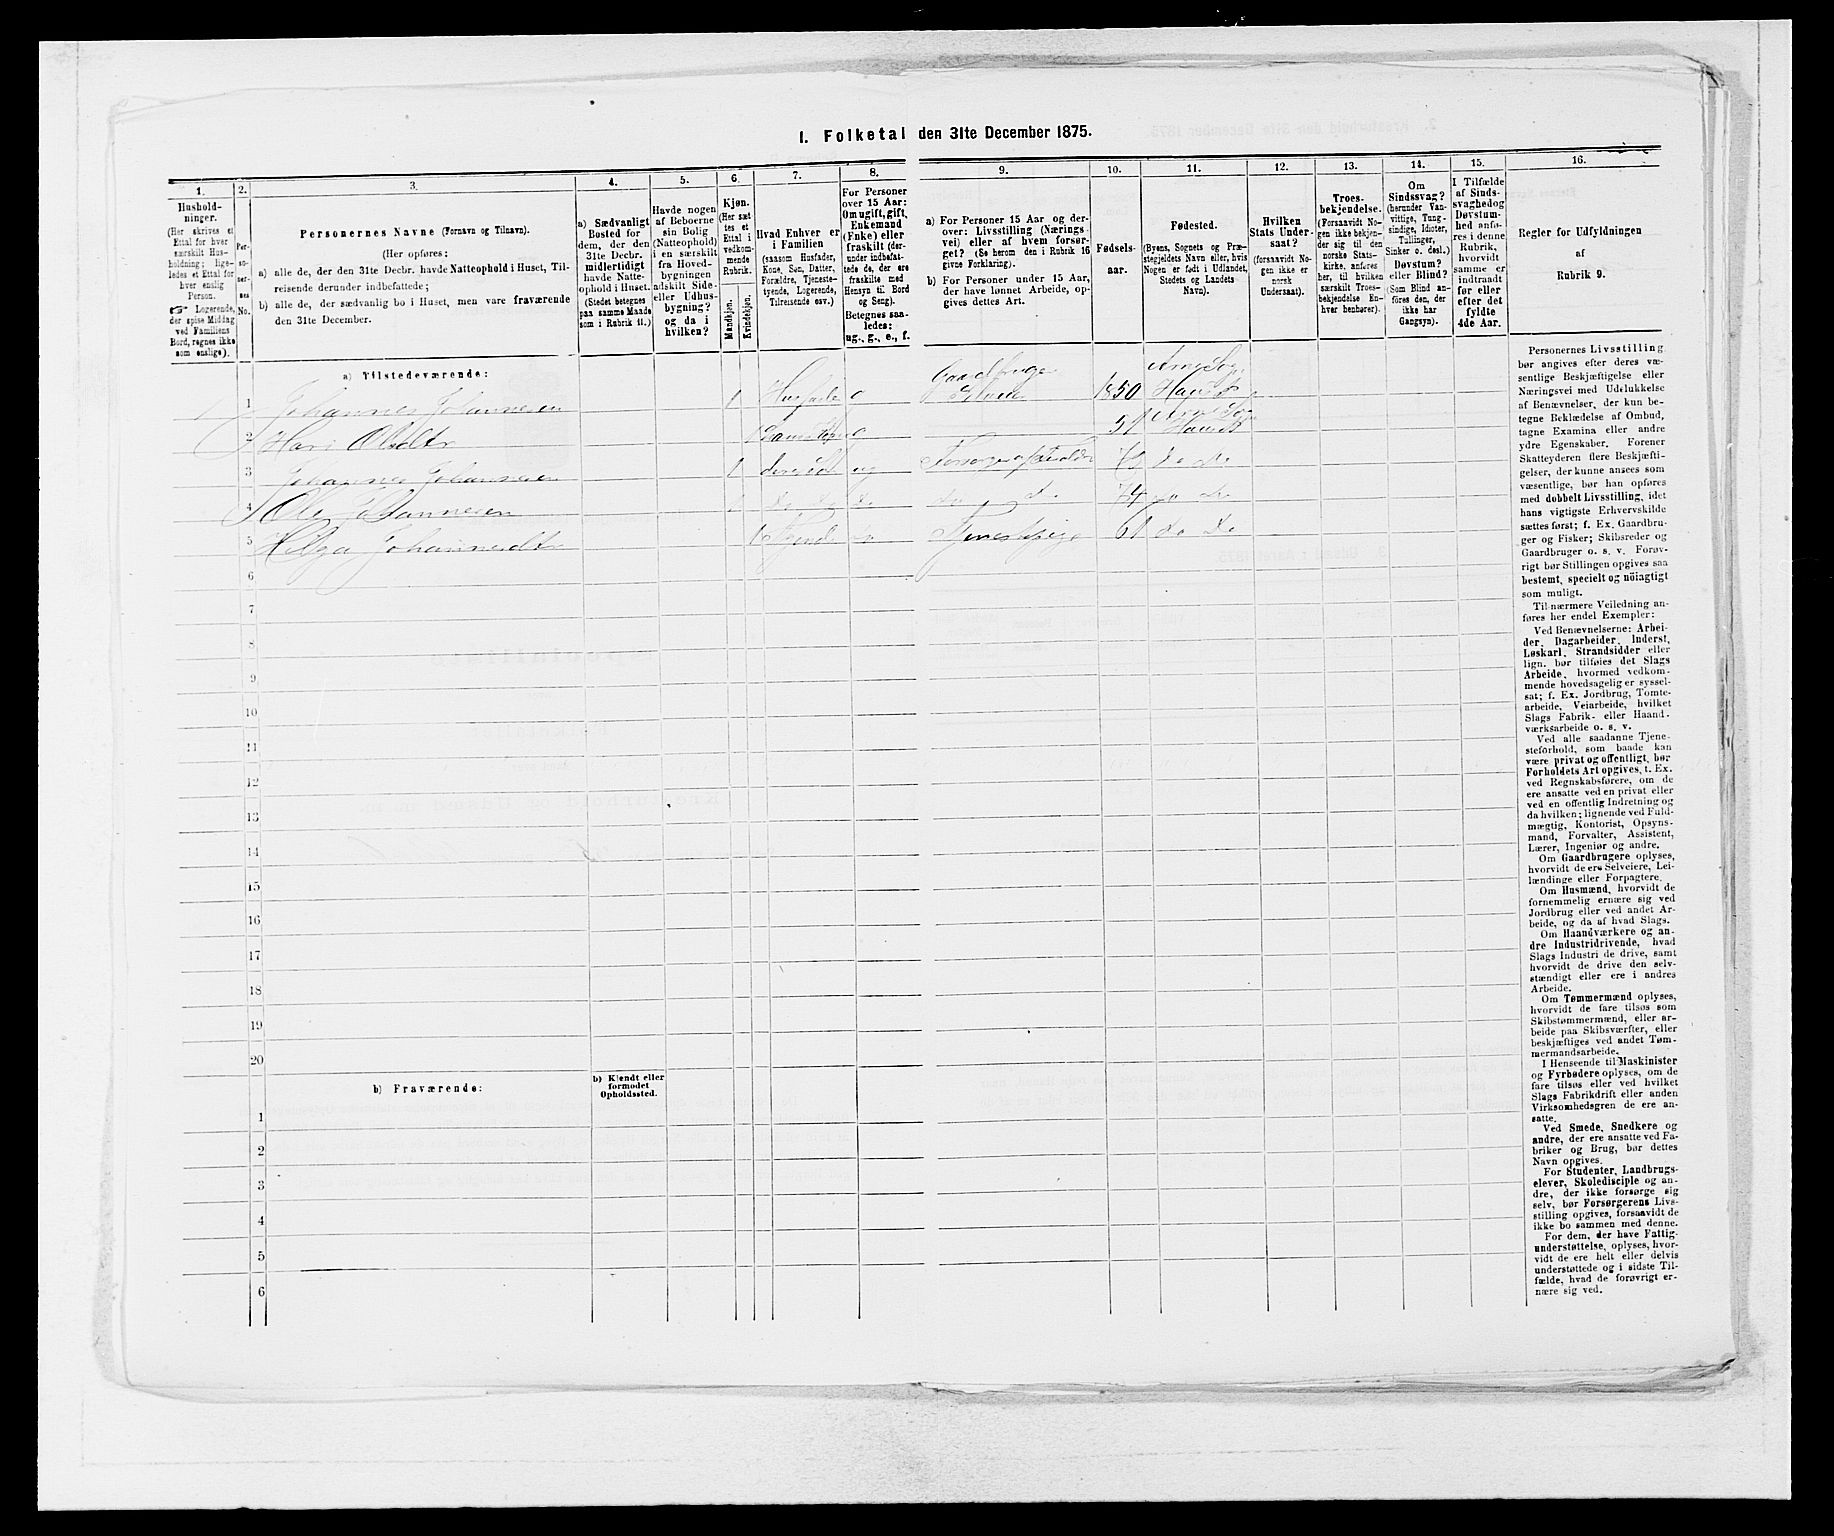 1. Folketal den 31te December 1875.
1.
2.
3.
4.
5.
6.
7.
8.
9.
10.
11.
12.
13.
14.
15.
16.
Hushold-
ninger.
(Her skrives et
Ettal for hver
særskilt Hus-
holdning; lige-
ledes et Ettal for
hver enslig
Person.
☞ Logerende,
der spise Middag
ved Familiens
Bord, regnes ikke
som enslige).
Per-
so-
ner-
nes
No.
Personernes Navne (Fornavn og Tilnavn).
(Her opføres:
a) alle de, der den 31te Decbr. havde Natteophold i Huset, Til-
reisende derunder indbefattede;
b) alle de, der sædvanlig bo i Huset, men vare fraværende
den 31te December.
a) Sædvanligt
Bosted for
dem, der den
31te Decbr.
midlertidigt
havde Natte-
ophold i Huset.
(Stedet betegnes
paa samme Maade
som i Rubrik 11.)
Havde nogen
af Beboerne
sin Bolig
(Natteophold)
i en særskilt
fra Hoved-
bygningen
adskilt Side-
eller Udhus-
bygning?
og da i
hvilken?
Kjøn.
(Her sæt-
tes et
Ettal i
vedkom-
mende
Rubrik.
Mandkjøn.
Kvindekjøn.
Hvad Enhver er
i Familien
(saasom Husfader,
Kone, Søn, Datter,
Forældre, Tjeneste-
tyende, Logerende,
Tilreisende osv.)
For Personer
over 15 Aar:
Om ugift, gift,
Enkemand
(Enke) eller
fraskilt (der-
under indbefat-
tede de, der ere
fraskilte med
Hensyn til Bord
og Seng).
Betegnes saa-
ledes:
ug., g., e., f.
a) For Personer 15 Aar og der-
over: Livsstilling (Nærings-
vei) eller af hvem forsør-
get? (Se herom den i Rubrik 16
givne Forklaring).
b) For Personer under 15 Aar,
der have lønnet Arbeide, op-
gives dettes Art.
Fødsels-
aar.
Fødested.
(Byens, Sognets og Præ-
stegjeldets Navn eller, hvis
Nogen er født i Udlandet,
Stedets og Landets
Navn).
Hvilken
Stats Under-
saat?
(forsaavidt No-
gen ikke er
norsk
Undersaat).
Troes-
bekjendelse.
(Forsaavidt No-
gen ikke bekjen-
der sig til den
norske Stats-
kirke, anføres
her, til hvilken
særskilt Troes-
bekjendelse En-
hver henhører).
Om
Sindssvag?
(herunder Van-
vittige, Tung-
sindige, Idioter,
Tullinger,
Sinker o. desl.)
Døvstum?
eller Blind?
(Som Blind an-
føres den, der
ikke har
Gangsyn).
I Tilfælde
af Sinds-
svaghed og
Døvstum-
hed anfø-
res i denne
Rubrik,
hvorvidt
samme er
indtraadt
før eller
efter det
fyldte
4de Aar.
Regler for Udfyldningen
af
Rubrik 9.
a) Tilstedeværende:
1 Johannes Johannesen 1 Gaardbruger 1850 Arne Sogn
2 1 Arne Sogn
3 Johannes Johannesen 1 ug do do
4 Ole Johannesen 1 do do 74 do do
5 Helga Johannesdtr 1 Tjenestepige 61 do do
6
7
8
9
10
11
12
13
14
15
16
17
18
19
20
b) Fraværende:
b) Kjendt eller
formodet
Opholdssted.
1
2
3
4
5
6
Personernes Livsstilling
bør angives efter deres væ-
sentlige Beskjæftigelse eller
Næringsvei med Udelukkelse
af Benævnelser, der kun be-
tegne Beklædelse af Ombud,
tagne Examina eller andre
ydre Egenskaber. Forener
Skatteyderen flere Beskjæfti-
gelser, der kunne ansees som
væsentlige, bør han opføres
med dobbelt Livsstilling, idet
hans vigtigste Erhvervskilde
sættes først; f. Ex. Gaardbru-
ger og Fisker; Skibsreder og
Gaardbruger o. s. v. Forøv-
rigt bør Stillingen opgives saa
bestemt, specielt og nöiagtigt
som muligt.
Til nærmere Veiledning an-
føres her endel Exempler:
Ved Benævnelserne: Arbei-
der, Dagarbeider, Inderst,
Løskarl, Strandsidder eller
lign. bør tilføies det Slags
Arbeide, hvormed vedkom-
mende hovedsagelig er syssel-
sat; f. Ex. Jordbrug, Tomte-
arbeide, Veiarbeide, hvilket
Slags Fabrik- eller Haand-
værksarbeide o. s. v.
Ved alle saadanne Tjene-
steforhold, som baade kan
være privat og offentligt, bør
Forholdets Art opgives, t. Ex.
ved Regnskabsførere, om de
ere ansatte ved en privat eller
ved en offentlig Indretning og
da hvilken; lignende ved Fuld-
mægtig, Kontorist, Opsyns-
mand, Forvalter, Assistent,
Lærer, Ingeniør og andre.
Om Gaardbrugere oplyses,
hvorvidt de ere Selveiere, Lei-
lændinge eller Forpagtere.
Om Husmænd, hvorvidt de
fornemmelig ernære sig ved
Jordbrug eller ved andet Ar-
beide, og da af hvad Slags.
Om Haandværkere og an-
dre Industridrivende, hvad
Slags Industri de drive, samt
hvorvidt de drive den selv-
stændigt eller ere i andres
Arbeide.
Om Tømmermænd oplyses,
hvorvidt de fare tilsøs som
Skibstømmermænd, eller ar-
beide paa Skibsværfter, eller
beskjæftiges ved andet Tøm-
mermandsarbeide.
I Henseende til Maskinister
og Fyrbødere oplyses, om de
fare tilsøs eller ved hvilket
Slags Fabrikdrift eller anden
Virksomhedsgren de ere an-
satte.
Ved Smede, Snedkere og
andre, der ere ansatte ved Fa-
briker og Brug, bør dettes
Navn opgives.
For Studenter, Landbrugs-
elever, Skoledisciple og an-
dre, der ikke forsørge sig
selv, bør Forsørgerens Livs-
stilling opgives, forsaavidt de
ikke bo sammen med denne.
For dem, der have Fattig-
understøttelse, oplyses, hvor-
vidt de ere helt eller delvis
understøttede og i sidste Til-
fælde, hvad de forøvrigt er-
nære sig ved.